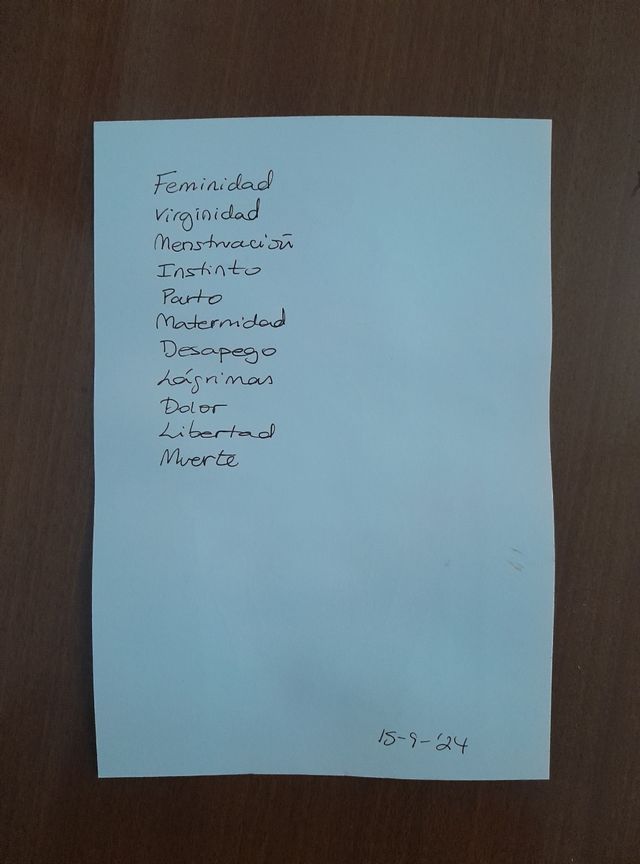 Feminidad
Virginidad
Menstruación
Instinto
Parto
Maternidad
Desapego
Lágrimas
Dolor
Libertad
Muerte
15-9-'24